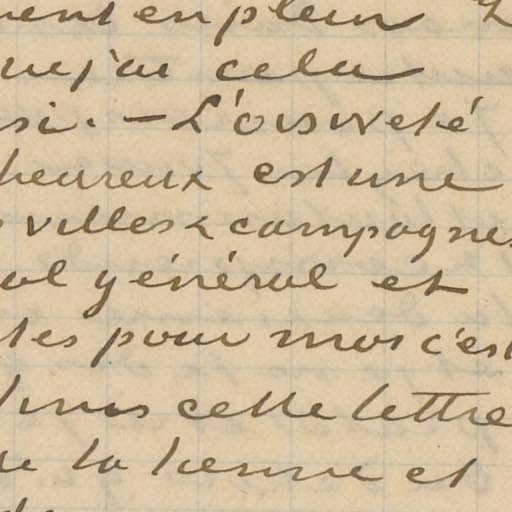 ment en plein
que j'ai cela
si. - L'oisiveté
heureux est une
villes & campagnes
al général et
tes pour moi c'est
finis cette lettre
de la tienne et